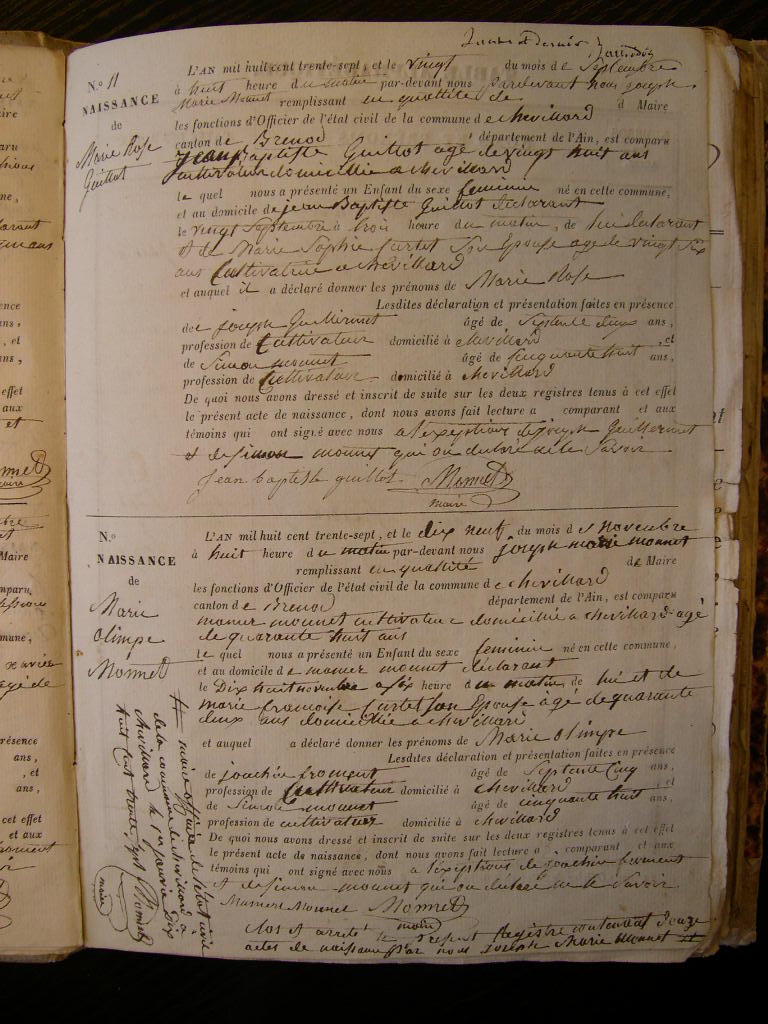 N.º 11
NAISSANCE
de
Marie Rose
Guillot
L'AN mil huit cent trente-sept, et le vingt du mois de Septembre
à huit heure du matin par-devant nous pardevant nous joseph
Marie Monnet remplissant en qualité de d Maire
les fonctions d'Officier de l'état civil de la commune de chevillard
canton de Brenod département de l'Ain, est comparu
Jean Baptiste Guillot agé de vingt huit ans
cultivateur domicillié a chevillard
le quel nous a présenté un Enfant du sexe feminin né en cette commune,
et au domicile de jean Baptiste Guillot declarant
le vingt Septembre à trois heure du matin, de lui declarant
et de Marie Sophie Curtet Son Epouse agé de vingt six
ans Cultivatrice a chevillard
et auquel il a déclaré donner les prénoms de Marie Rose
Lesdites déclaration et présentation faites en présence
de joseph Guillermet âgé de septante deux ans,
profession de Cultivateur domicilié à chevillard , et
de Simon monnet âgé de cinquante huit ans,
profession de Cultivateur domicilié à chevillard
De quoi nous avons dressé et inscrit de suite sur les deux registres tenus à cet effet
le présent acte de naissance, dont nous avons fait lecture a comparant et aux
témoins qui ont signé avec nous a l'exeptions de joseph Guillermet
et de simon monnet qui on declaré ne le Savoir
jean baptiste guillot Monnet
maire
N.º
NAISSANCE
de
Marie
olimpe
Monnet
L'AN mil huit cent trente-sept, et le dix neuf du mois de novembre
à huit heure du matin par-devant nous joseph marie monnet
remplissant en qualité de Maire
les fonctions d'Officier de l'état civil de la commune de chevillard
canton de Brenod département de l'Ain, est comparu
mamer monnet cultivateur domicillié a chevillard agé
de quarante huit ans
le quel nous a présenté un Enfant du sexe feminin né en cette commune,
et au domicile de mamer monnet declarant
le Dix huit novembre a six heure du matin de lui et de
marie francoise Curtet son Epouse agé de quarante
deux ans domicillié a chevillard
et auquel a déclaré donner les prénoms de Marie olimpe
Lesdites déclaration et présentation faites en présence
de joachin froment âgé de septante cinq ans,
profession de Cultivateur domicilié à chevillard , et
de Simon monnet âgé de cinquante huit ans,
profession de cultivateur domicilié à chevillard
De quoi nous avons dressé et inscrit de suite sur les deux registres tenus à cet effet
le présent acte de naissance, dont nous avons fait lecture a comparant et aux
témoins qui ont signé avec nous a l'exeptions de joachin froment
et de simon monnet qui on declaré ne le Savoir
Mamert Monnet Monnet
maire
Clos et arreté le present Registre contenant douze
actes de naissance par nous Joseph Marie Monnet
maire officier de l'etat civil
de la commune de chevillard a
chevillard le 1er janvier Dix
huit cent trente huit Monnet
maire